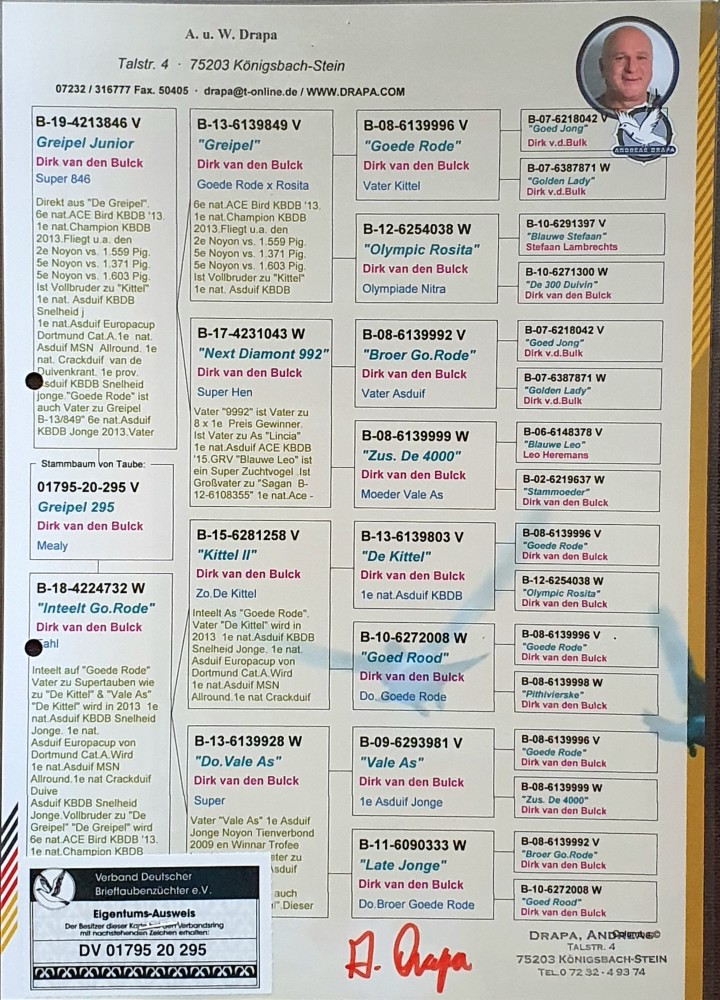 A. u. W. Drapa
Talstr. 4 · 75203 Königsbach-Stein
07232 / 316777 Fax. 50405 · drapa@t-online.de / WWW.DRAPA.COM
ANDREAS DRAPA
B-19-4213846 V
Greipel Junior
Dirk van den Bulck
Super 846
Direkt aus "De Greipel".
6e nat.ACE Bird KBDB '13.
1e nat.Champion KBDB
2013.Fliegt u.a. den
2e Noyon vs. 1.559 Pig.
5e Noyon vs. 1.371 Pig.
5e Noyon vs. 1.603 Pig.
Ist Vollbruder zu "Kittel"
1e nat. Asduif KBDB
Snelheid j
1e nat.Asduif Europacup
Dortmund Cat.A.1e nat.
Asduif MSN Allround. 1e
nat. Crackduif van de
Duivenkrant. 1e prov.
sduif KBDB Snelheid
jonge."Goede Rode" ist
auch Vater zu Greipel
B-13/849" 6e nat.Asduif
KBDB Jonge 2013.Vater
Stammbaum von Taube:
01795-20-295 V
Greipel 295
Dirk van den Bulck
Mealy
B-18-4224732 W
"Inteelt Go.Rode"
Dirk van den Bulck
ahl
Inteelt auf "Goede Rode"
Vater zu Supertauben wie
zu "De Kittel" & "Vale As"
"De Kittel" wird in 2013 1e
nat.Asduif KBDB Snelheid
Jonge. 1e nat.
Asduif Europacup von
Dortmund Cat.A.Wird
1e nat.Asduif MSN
Allround.1e nat Crackduif
Duive
Asduif KBDB Snelheid
Jonge.Vollbruder zu "De
Greipel" "De Greipel" wird
6e nat.ACE Bird KBDB '13.
1e nat.Champion KBDB
B-13-6139849 V
"Greipel"
Dirk van den Bulck
Goede Rode x Rosita
6e nat.ACE Bird KBDB '13.
1e nat.Champion KBDB
2013.Fliegt u.a. den
2e Noyon vs. 1.559 Pig.
5e Noyon vs. 1.371 Pig.
5e Noyon vs. 1.603 Pig.
Ist Vollbruder zu "Kittel"
1e nat. Asduif KBDB
B-17-4231043 W
"Next Diamont 992"
Dirk van den Bulck
Super Hen
Vater "9992" ist Vater zu
8 x 1e Preis Gewinner.
Ist Vater zu As "Lincia"
1e nat.Asduif ACE KBDB
'15.GRV "Blauwe Leo" ist
ein Super Zuchtvogel .Ist
Großvater zu "Sagan B-
12-6108355" 1e nat.Ace -
B-15-6281258 V
"Kittel II"
Dirk van den Bulck
Zo.De Kittel
Inteelt As "Goede Rode".
Vater "De Kittel" wird in
2013 1e nat.Asduif KBDB
Snelheid Jonge. 1e nat.
Asduif Europacup von
Dortmund Cat.A.Wird
1e nat.Asduif MSN
Allround.1e nat Crackduif
B-13-6139928 W
"Do.Vale As"
Dirk van den Bulck
Super
Vater "Vale As" 1e Asduif
Jonge Noyon Tienverbond
2009 en Winnar Trofee
ter zu
sduif
auch
".Dieser
B-08-6139996 V
"Goede Rode"
Dirk van den Bulck
Vater Kittel
B-12-6254038 W
"Olympic Rosita"
Dirk van den Bulck
Olympiade Nitra
B-08-6139992 V
"Broer Go.Rode"
Dirk van den Bulck
Vater Asduif
B-08-6139999 W
"Zus. De 4000"
Dirk van den Bulck
Moeder Vale As
B-13-6139803 V
"De Kittel"
Dirk van den Bulck
1e nat.Asduif KBDB
B-10-6272008 W
"Goed Rood"
Dirk van den Bulck
Do. Goede Rode
B-09-6293981 V
"Vale As"
Dirk van den Bulck
1e Asduif Jonge
B-11-6090333 W
"Late Jonge"
Dirk van den Bulck
Do.Broer Goede Rode
B-07-6218042 V
"Goed Jong"
Dirk v.d.Bulk
B-07-6387871 W
"Golden Lady"
Dirk v.d.Bulk
B-10-6291397 V
"Blauwe Stefaan"
Stefaan Lambrechts
B-10-6271300 W
"De 300 Duivin"
Dirk van den Bulck
B-07-6218042 V
"Goed Jong"
Dirk v.d.Bulk
B-07-6387871 W
"Golden Lady"
Dirk v.d.Bulk
B-06-6148378 V
"Blauwe Leo"
Leo Heremans
B-02-6219637 W
"Stammoeder"
Dirk van den Bulck
B-08-6139996 V
"Goede Rode"
Dirk van den Bulck
B-12-6254038 W
"Olympic Rosita"
Dirk van den Bulck
B-08-6139996 V
"Goede Rode"
Dirk van den Bulck
B-08-6139998 W
"Pithivierske"
Dirk van den Bulck
B-08-6139996 V
"Goede Rode"
Dirk van den Bulck
B-08-6139999 W
"Zus. De 4000"
Dirk van den Bulck
B-08-6139992 V
"Broer Go.Rode"
Dirk van den Bulck
B-10-6272008 W
"Goed Rood"
Dirk van den Bulck
Verband Deutscher
Brieftaubenzüchter e.V.
Eigentums-Ausweis
Der Besitzer dieser Karte hat den Verbandsring
mit nachstehenden Zeichen erhalten:
DV 01795 20 295
A. Drapa
DRAPA, ANDREAS
TALSTR. 4
75203 KÖNIGSBACH-STEIN
TEL.0 72 32 - 4 93 74